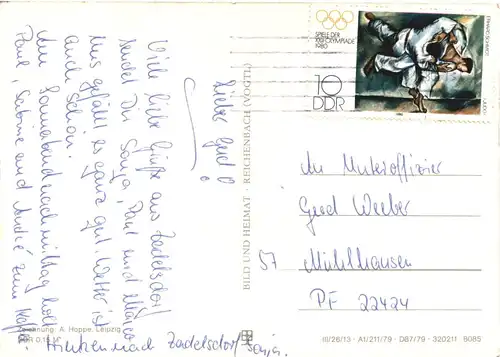 Lieber Gerd!
Viele liebe Grüße aus Zadelsdorf
sendet Dir Sonja, Paul und
Uns gefällt es ganz gut. Wetter ist
auch schön.
Am Sonnabendnachmittag
Paul, Sabine und André zum
nach Zadelsdorf
Zeichnung: A. Hoppe, Leipzig
BILD UND HEIMAT · REICHENBACH (VOGTL)
SPIELE DER
XXII. OLYMPIADE
1980
10
DDR
1980
An Unteroffizier
Gerd Weber
57 Mühlhausen
PF 22424
III/26/13 · A1/211/79 · D87/79 · 320211 B085